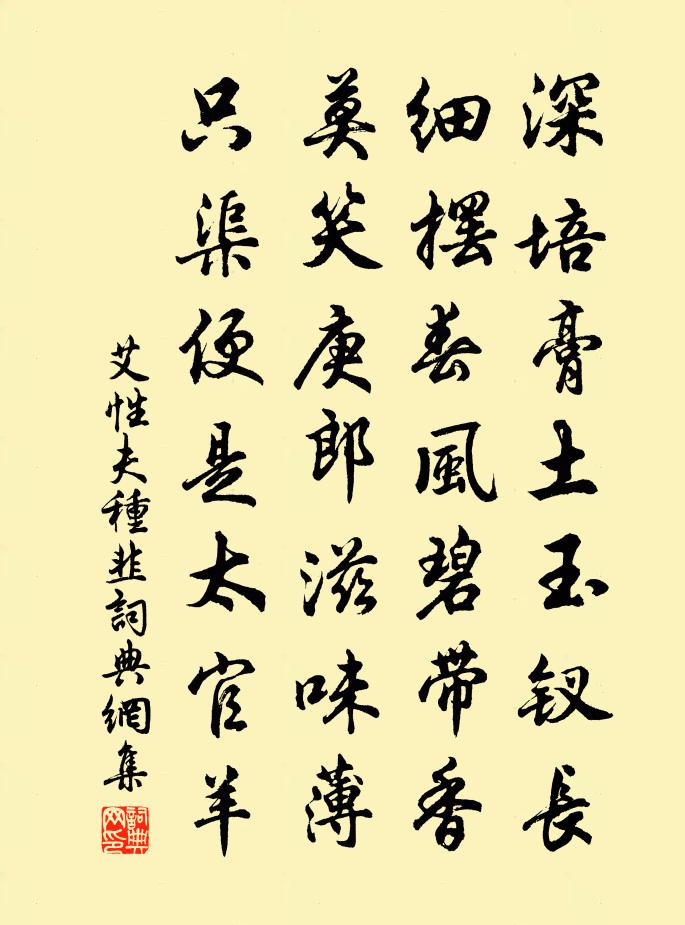 深培膏土玉釵長
細擺春風碧帶香
莫笑庾郎滋味薄
只渠便是太官羊
艾性夫種韭詞典網集
詞典
网印